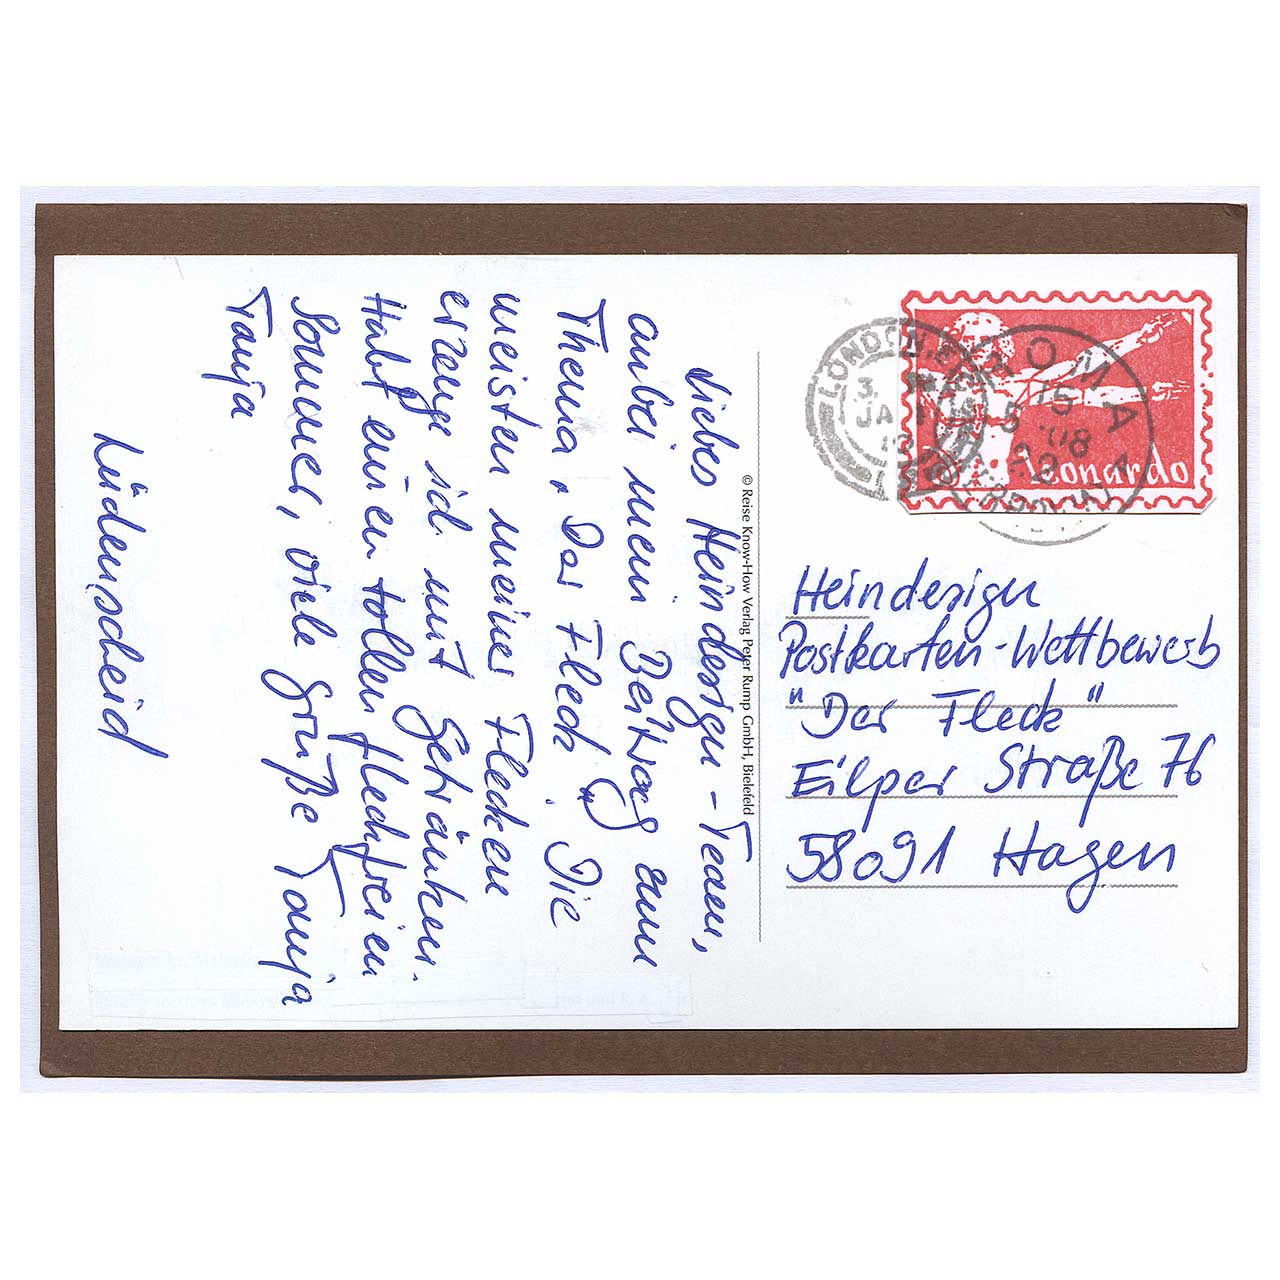 Liebes Heindesign-Team,
anbei mein Beitrag zum
Thema "Der Fleck". Die
meisten meiner Flecken
erzeuge ich mit Getränken.
Habt einen tollen fleckfreien
Sommer, viele Grüße Tanja
Tanja
Lüdenscheid
© Reise Know-How Verlag Peter Rump GmbH, Bielefeld
LONDON.E
3.
JA
ROMA
15
5 .08
22
Leonardo
Heindesign
Postkarten-Wettbewerb
"Der Fleck"
Eilper Straße 76
58091 Hagen